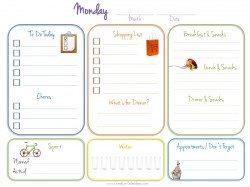 Monday
Month
Date
To Do Today
Shopping List
Breakfast & Snacks
Lunch & Snacks
Chores
What's for Dinner?
Dinner & Snacks
Sport
Water
Appointments / Don't Forget
Planned
Actual